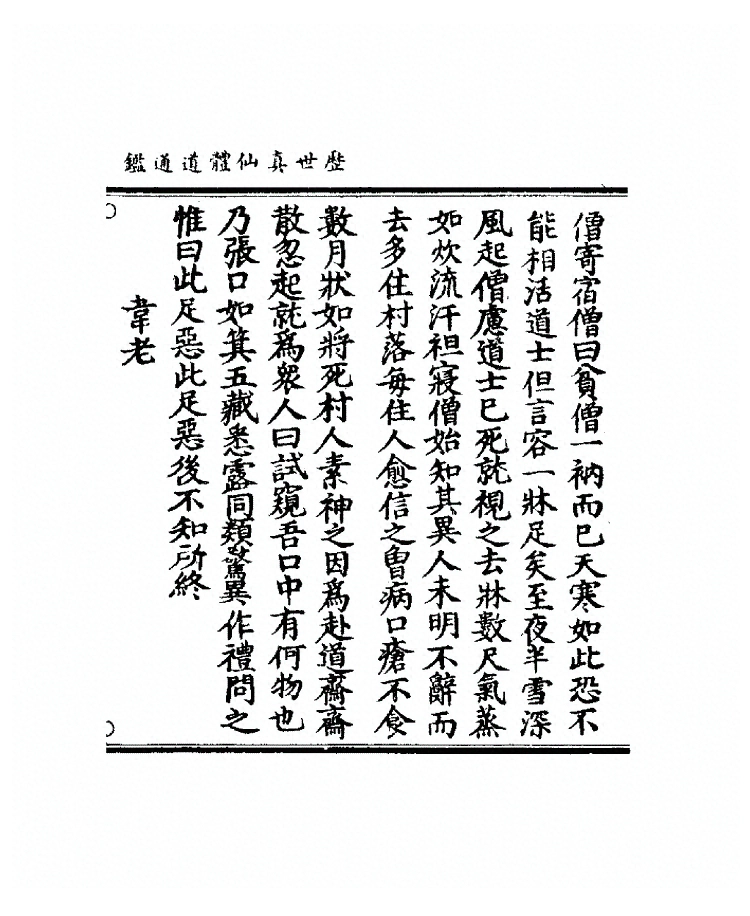 歷世真仙體道通鑑
僧寄宿僧曰貧僧一衲而已天寒如此恐不
能相活道士但言容一牀足矣至夜半雪深
風起僧慮道士已死就視之去牀數尺氣蒸
如炊流汗袒寢僧始知其異人未明不辭而
去多住村落每住人愈信之曾病口瘡不食
數月狀如將死村人素神之因為赴道齋齋
散忽起就為衆人曰試窺吾口中有何物也
乃張口如箕五藏悉露同類驚異作禮問之
惟曰此足惡此足惡後不知所終
韋老